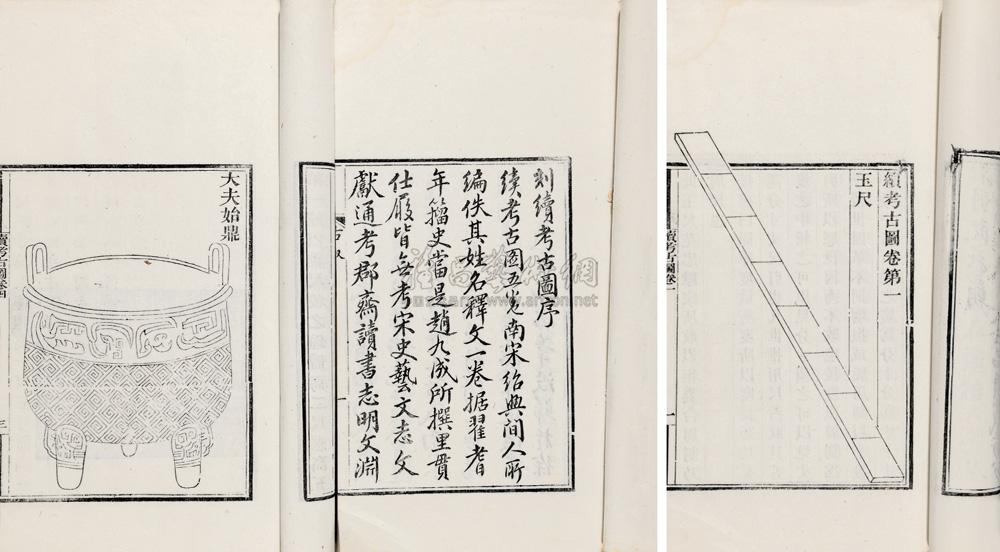 大夫始鼎
續考古圖卷四
三
刻續考古圖序
續考古圖五卷南宋紹興間人所
編佚其姓名釋文一卷據翟耆
年籀史當是趙九成所撰里貫
仕履皆無考宋史藝文志文
獻通考郡齋讀書志明文淵
續考古圖卷第一
玉尺
續考古圖卷一
一